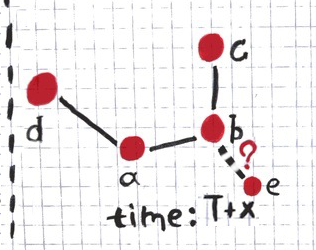 c
d
b
a
?
e
time: T+x